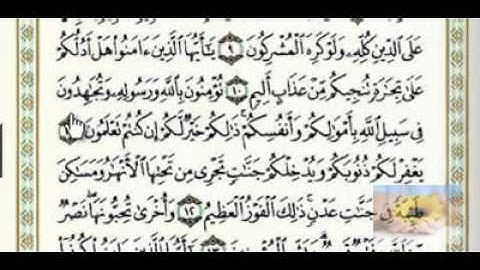 عَلَى ٱلدِّينِ كُلِّهِۦ وَلَوْ كَرِهَ ٱلْمُشْرِكُونَ ٩ يَٰٓأَيُّهَا ٱلَّذِينَ ءَامَنُوا۟ هَلْ أَدُلُّكُمْ
عَلَىٰ تِجَٰرَةٍ تُنجِيكُم مِّنْ عَذَابٍ أَلِيمٍ ١٠ تُؤْمِنُونَ بِٱللَّهِ وَرَسُولِهِۦ وَتُجَٰهِدُونَ
فِى سَبِيلِ ٱللَّهِ بِأَمْوَٰلِكُمْ وَأَنفُسِكُمْ ۚ ذَٰلِكُمْ خَيْرٌ لَّكُمْ إِن كُنتُمْ تَعْلَمُونَ
يَغْفِرْ لَكُمْ ذُنُوبَكُمْ وَيُدْخِلْكُمْ جَنَّٰتٍ تَجْرِى مِن تَحْتِهَا ٱلْأَنْهَٰرُ وَمَسَٰكِنَ
طَيِّبَةً فِى جَنَّٰتِ عَدْنٍ ۚ ذَٰلِكَ ٱلْفَوْزُ ٱلْعَظِيمُ ١٢ وَأُخْرَىٰ تُحِبُّونَهَا ۖ نَصْرٌ